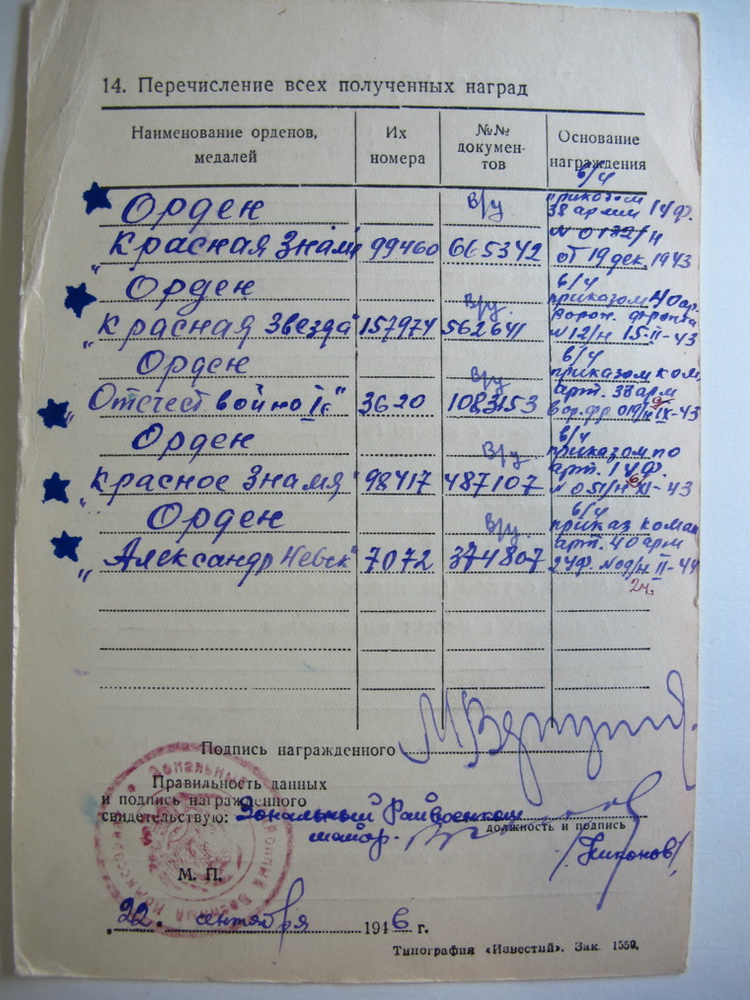 14. Перечисление всех полученных наград
Наименование орденов, медалей
Их номера
№№ документов
Основание награждения
Орден
в/у
в/ч
приказом
38 армии 1 Уф.
"Красная Знамя 99460 665342
N 0132/н
от 19 дек. 1943
Орден
в/у.
в/ч
приказом 40 ар.
"Красная Звезда" 157974 562641
Ворон. фронта
N 12/н 15-II-43
Орден
в/у
в/ч
приказом ком.
арт. 38 арм
"Отечест войно II с" 3620 1083153
вор. фр 019/н IX-43
Орден
в/у
в/ч
приказом по
арт. 1 Уф.
"Красное Знамя" 98417 487107
N 051/н XI-43
Орден
в/у.
в/ч
приказ коман
арт. 40 арм
"Александр Невск" 7072 374807
2 Уф. II-44
2ч.
Подпись награжденного
Правильность данных
и подпись награжденного
свидетельствую: Зональный Райвоенком
майор.
должность и подпись
/Никонов/
М. П.
22. сентября 1946 г.
Типография «Известий». Зак. 1559.